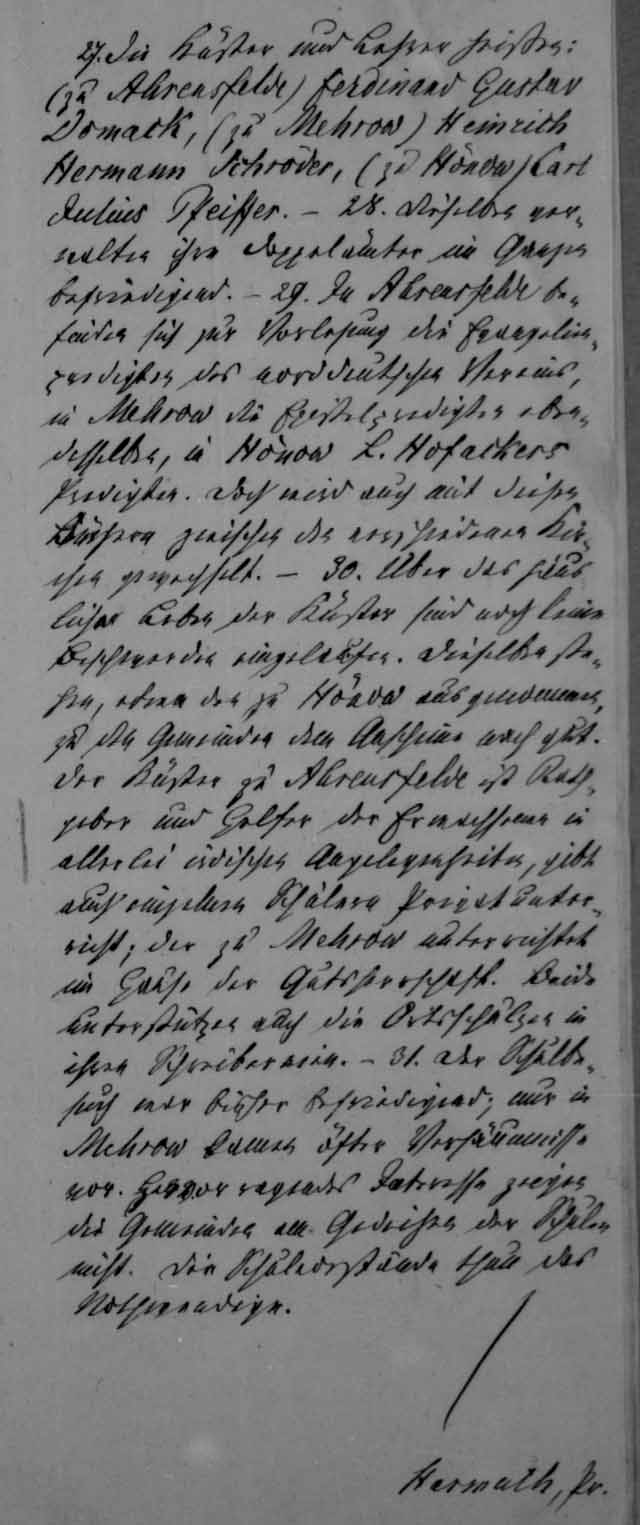 27. Die Küster und Lehrer heißen:
(zu Ahrensfelde) Ferdinand Gustav
Domack, (zu Mehrow) Heinrich
Hermann Schröder, (zu Hönow) Carl
Julius Pfeiffer. – 28. Dieselben ver-
walten ihre Doppelämter im Ganzen
befriedigend. – 29. In Ahrensfelde be-
finden sich zur Vorlesung die Evangelien-
predigten des norddeutschen Vereins,
in Mehrow die Epistelpredigten eben-
desselben, in Hönow L. Hofackers
Predigten. Doch wird auch mit diesen
Büchern zwischen den verschiedenen Kir-
chen gewechselt. – 30. Über das häus
liche Leben der Küster sind noch keine
Beschwerden eingelaufen. Dieselben ste-
hen, etwa den zu Hönow ausgenommen,
zu den Gemeinden dem Anscheine nach gut.
Der Küster zu Ahrensfelde ist Rath-
geber und Helfer der Erwachsenen in
allerlei irdischen Angelegenheiten, gibt
auch einzelnen Schülern Privatunter-
richt; der zu Mehrow unterrichtet
im Hause der Gutsherrschaft. Beide
unterstützen auch die Ortsschulzen in
ihren Schreibereien. – 31. Der Schulbe-
such war bisher befriedigend; nur in
Mehrow kamen öfter Versäumnisse
vor. Hervorragendes Interesse zeigen
die Gemeinden am Gedeihen der Schulen
nicht. Die Schulvorstände thun das
Nothwendige.
Pr.